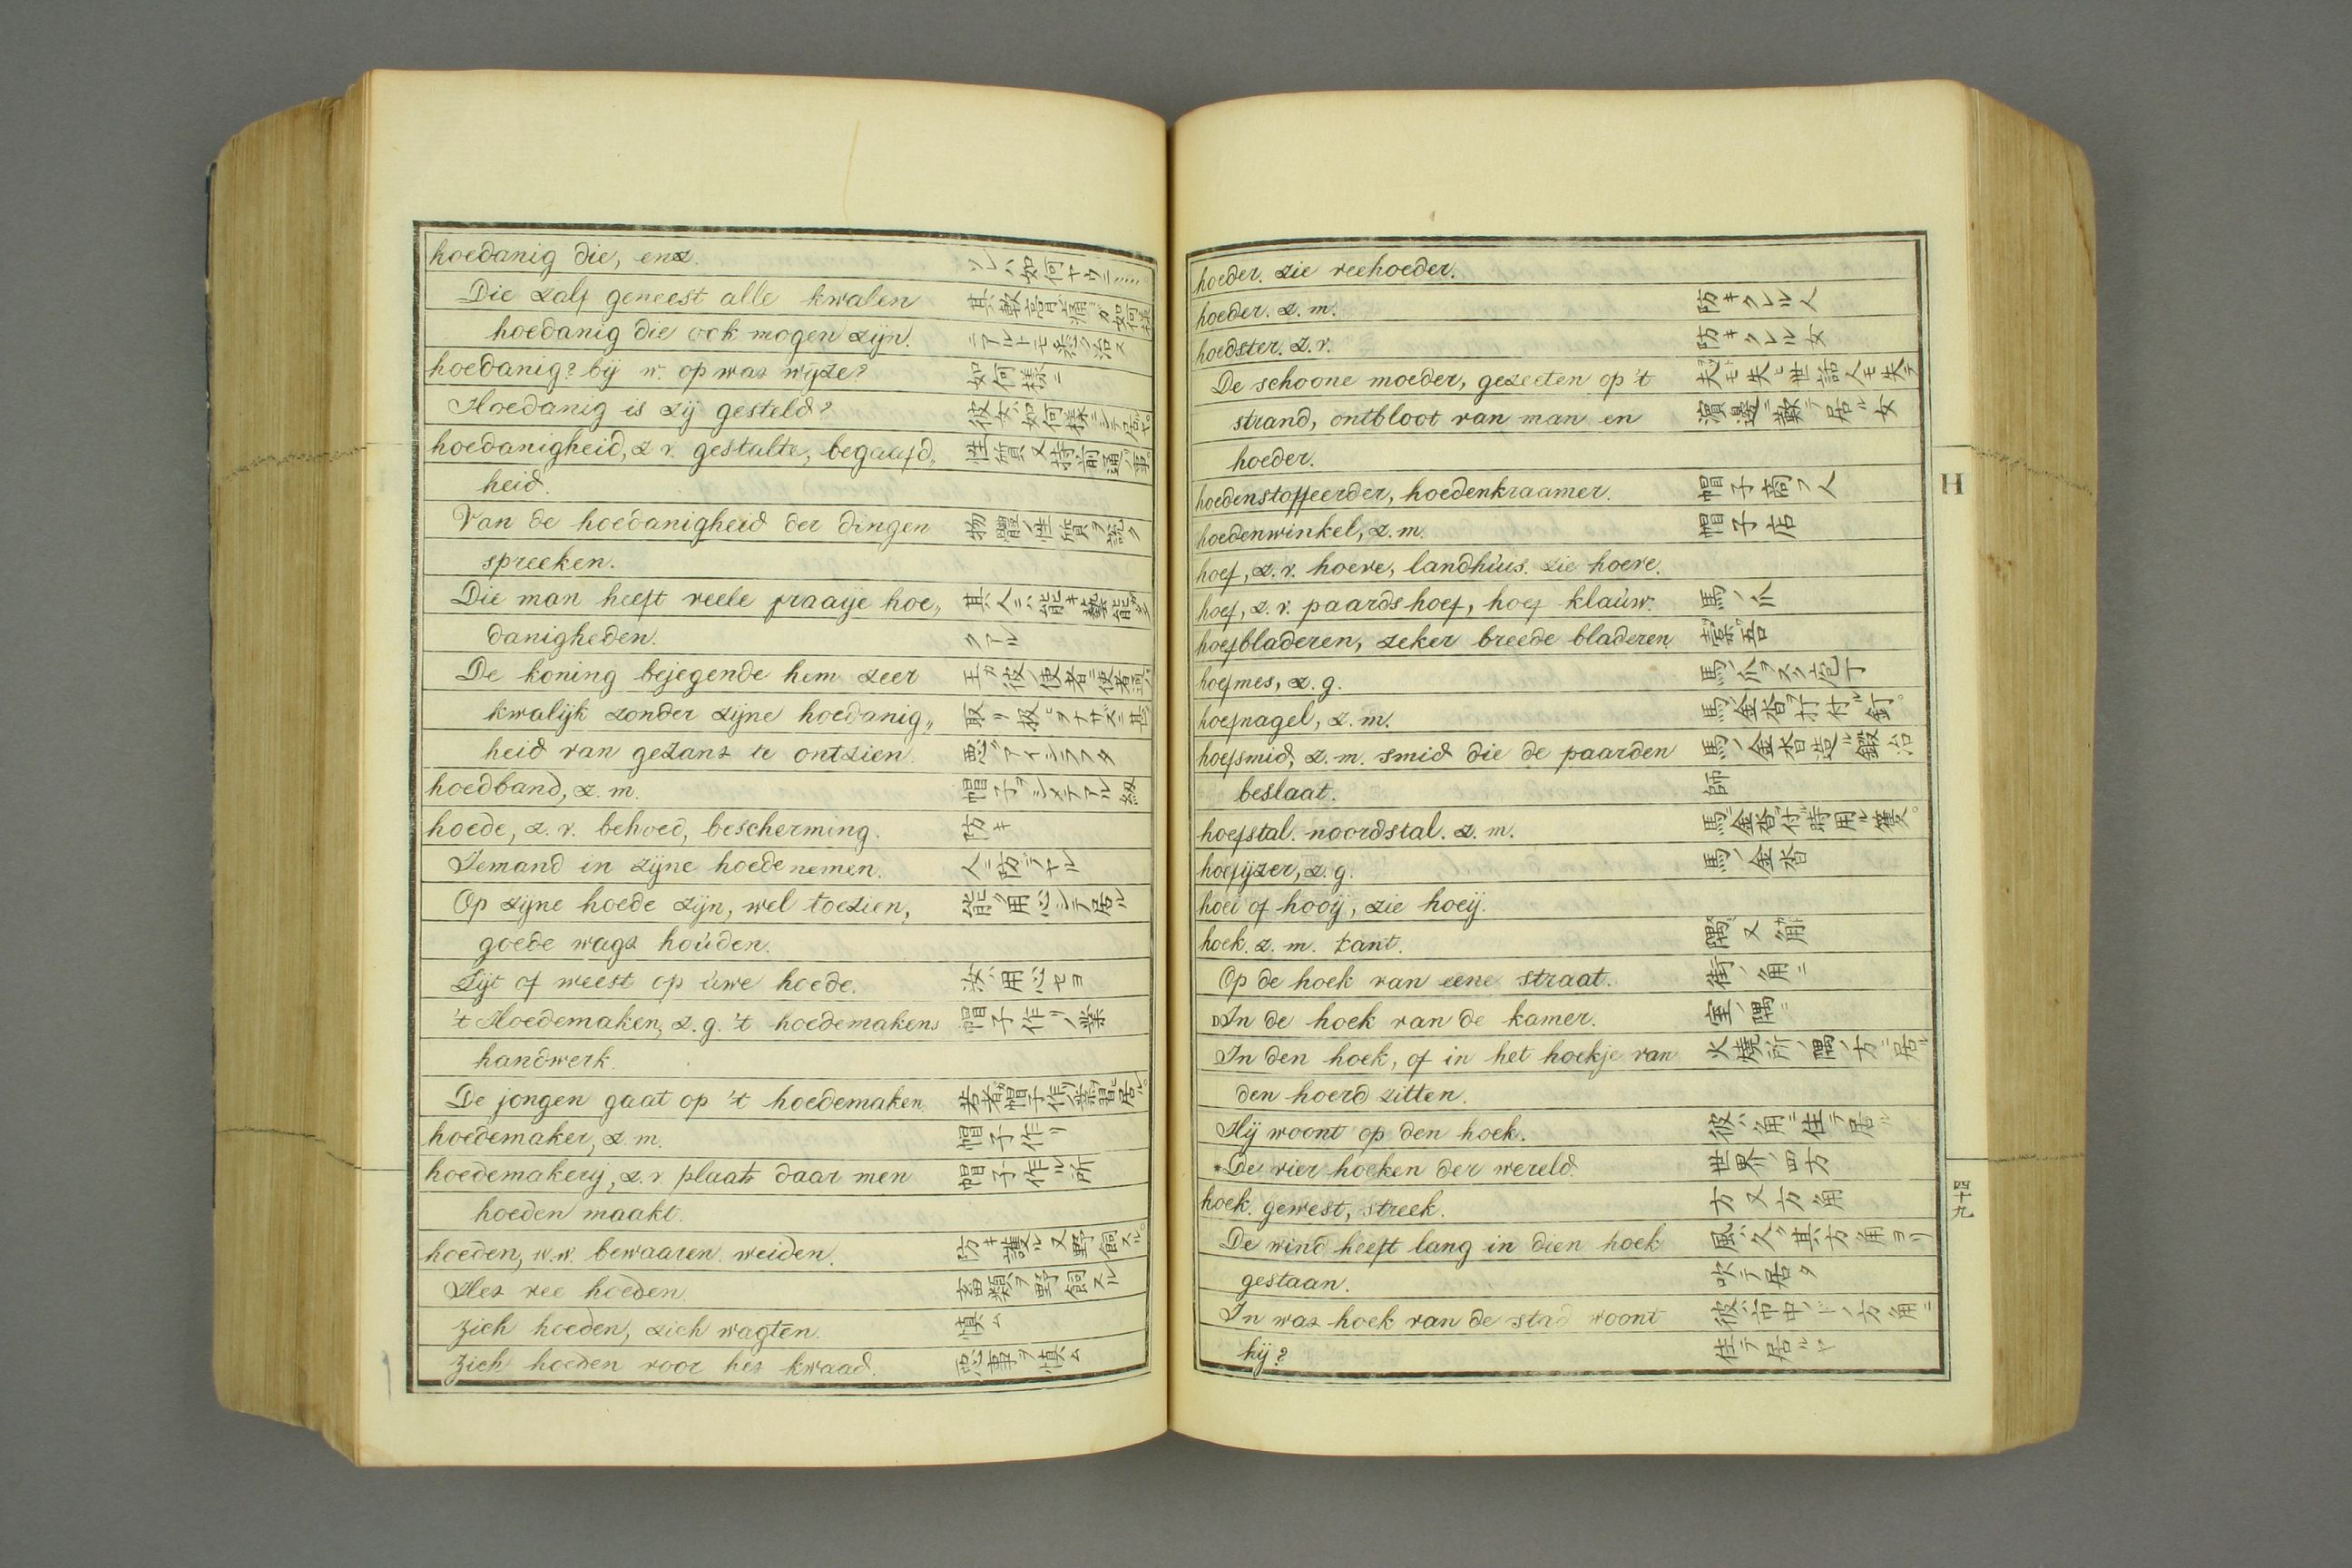 hoedanig die, enz. ソレハ如何ヤウニ……
Die zalf geneest alle kwalen
hoedanig die ook mogen zijn.
hoedanig? bij w. op waz wyze? 如何様ニ
Hoedanig is zij gesteld? 彼女ハ如何様ニシテ居ヤ。
hoedanigheid, z. v. gestalte, begaafd„
heid.
Van de hoedanigheid der dingen 物體ノ性質ヲ説ク
spreeken.
Die man heeft veele fraaije hoe„
danigheden. クアル
De koning bejegende hem zeer
kwalijk zonder zijne hoedanig„
heid van gezanz te ontzien. 悪クアイシラフタ
hoedband, z. m.
hoede, z. v. behoed, bescherming. 防キ
Iemand in zijne hoede nemen.
Op zijne hoede zijn, wel toezien, 能ク用心シテ居ル
goede wagz houden.
Zijt of weest op uwe hoede. 汝ハ用心セヨ
't Hoedemaken, z. g. 't hoedemakens 帽子作リノ業
handwerk.
De jongen gaat op 't hoedemaken
hoedemaker, z. m. 帽子作リ
hoedemakerij, z. v. plaats daar men 帽子作ル所
hoeden maakt.
hoeden, w. w. bewaaren. weiden. 防キ護ル又野飼スル。
Hez vee hoeden. 畜類ヲ野飼スル
Zich hoeden, zich wagten. 慎ム
Zich hoeden voor hez kwaad. 悪事ヲ慎ム
hoeder. zie veehoeder.
hoeder. z. m. 防キクレル人
hoedster. z. v. 防キクレル女
De schoone moeder, gezeeten op 't 夫モ失ヒ世話人モ失テ
strand, ontbloot van man en
hoeder.
hoedenstoffeerder, hoedenkraamer. 帽子商フ人
hoedenwinkel, z. m. 帽子店
hoef, z. v. hoeve, landhuis. zie hoeve.
hoef, z. v. paardshoef, hoef klauw. 馬ノ爪
hoefbladeren, zeker breede bladeren
hoefmes, z. g. 馬ノ爪ヲスク庖丁
hoefnagel, z. m. 馬ノ金沓ヲ打付ル釘。
hoefsmid, z. m. smid die de paarden 馬ノ金沓造ル鍛冶
beslaat. 師
hoefstal. noordstal. z. m.
hoefijzer, z. g. 馬ノ金沓
hoei of hooij, zie hoeij.
hoek. z. m. kant. 隅又角
Op de hoek van eene straat. 街ノ角ニ
In de hoek van de kamer. 室ノ隅ニ
In den hoek, of in het hoekje van 火焼所ノ隅ノ方ニ居ル
den hoerd zitten.
Hij woont op den hoek. 彼ハ角ニ住テ居ル
De vier hoeken der wereld. 世界ノ四方
hoek. gewest, streek. 方又方角
De wind heeft lang in dien hoek 風ハ久ク其方角ヨリ
gestaan. 吹テ居タ
In waz hoek van de stad woont 彼ハ市中ノドノ方角ニ
hij? 住テ居ルヤ
H
四十九